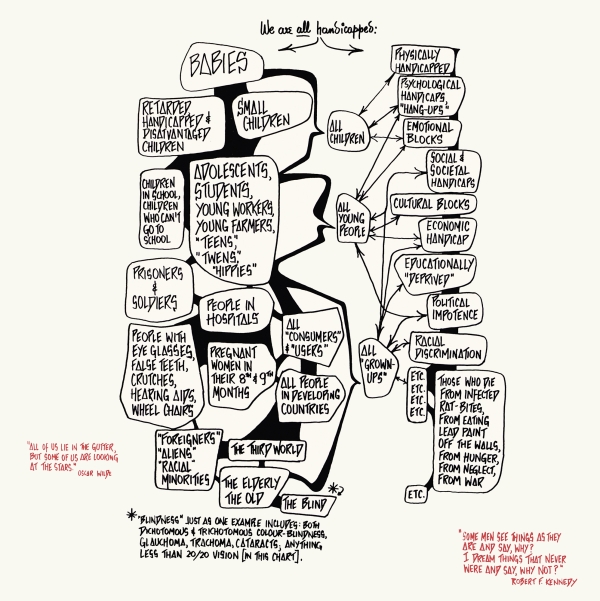 We are all handicapped:
BABIES
RETARDED,
HANDICAPPED &
DISATVANTAGED
CHILDREN
SMALL
CHILDREN
CHILDREN
IN SCHOOL,
CHILDREN
WHO CAN'T
GO TO
SCHOOL
ADOLESCENTS,
STUDENTS,
YOUNG WORKERS,
YOUNG FARMERS,
"TEENS",
"TWENS",
"HIPPIES"
PRISONERS
&
SOLDIERS
PEOPLE IN
HOSPITALS
PEOPLE WITH
EYE GLASSES,
FALSE TEETH,
CRUTCHES,
HEARING AIDS,
WHEEL CHAIRS
PREGNANT
WOMEN IN
THEIR 8TH & 9TH
MONTHS
ALL
"CONSUMERS"
& "USERS"
ALL PEOPLE
IN DEVELOPING
COUNTRIES
"FOREIGNERS"
"ALIENS"
"RACIAL"
MINORITIES
THE THIRD WORLD
THE ELDERLY
THE OLD
THE BLIND
*?
ALL
CHILDREN
ALL
YOUNG
PEOPLE
ALL
"GROWN-
UPS"
PHYSICALLY
HANDICAPPED
PSYCHOLOGICAL
HANDICAPS,
"HANG-UPS"
EMOTIONAL
BLOCKS
SOCIAL &
SOCIETAL
HANDICAPS
CULTURAL BLOCKS
ECONOMIC
HANDICAP
EDUCATIONALLY
"DEPRIVED"
POLITICAL
IMPOTENCE
RACIAL
DISCRIMINATION
ETC.
ETC.
ETC.
ETC.
THOSE WHO DIE
FROM INFECTED
RAT-BITES,
FROM EATING
LEAD PAINT
OFF THE WALLS,
FROM HUNGER,
FROM NEGLECT,
FROM WAR
ETC.
"ALL OF US LIE IN THE GUTTER,
BUT SOME OF US ARE LOOKING
AT THE STARS."
OSCAR WILDE
*"BLINDNESS" JUST AS ONE EXAMPLE INCLUDES: BOTH
DICHOTOMOUS & TRICHOTOMOUS COLOUR-BLINDNESS,
GLAUCHOMA, TRACHOMA, CATARACTS, ANYTHING
LESS THAN 20/20 VISION [IN THIS CHART].
"SOME MEN SEE THINGS AS THEY
ARE AND SAY, WHY?
I DREAM THINGS THAT NEVER
WERE AND SAY, WHY NOT?"
ROBERT F. KENNEDY